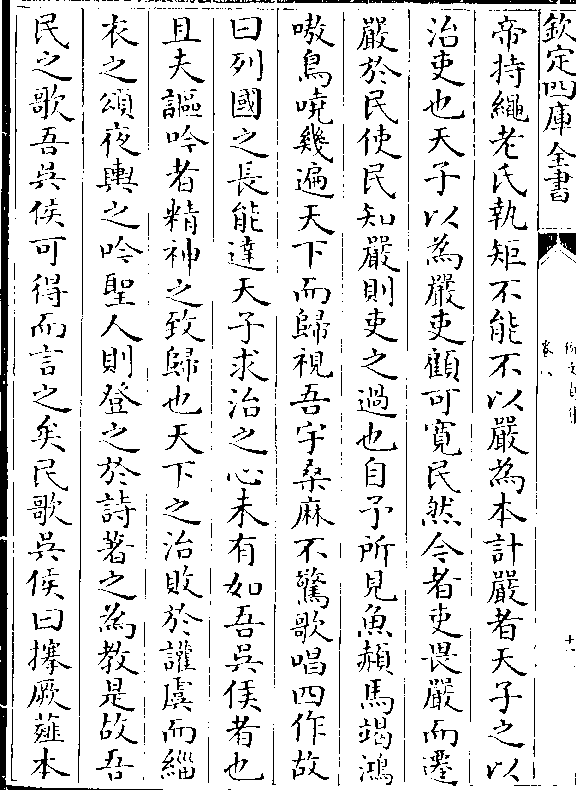 欽定四庫全書
卷八
帝持繩老氏執矩不能不以嚴為本計嚴者天子之以
治吏也天子以為嚴吏顧可寛民然今者吏畏嚴而遷
嚴於民使民知嚴則吏之過也自予所見魚頳馬竭鴻
嗷鳥嘵幾遍天下而歸視吾宇桑麻不驚歌唱四作故
曰列國之長能達天子求治之心未有如吾吳侯者也
且夫謳吟者精神之致歸也天下之治敗於讙虞而緇
衣之頌夜輿之吟聖人則登之於詩著之為教是故吾
民之歌吾吳侯可得而言之矣民歌吳侯曰搴厥薤本